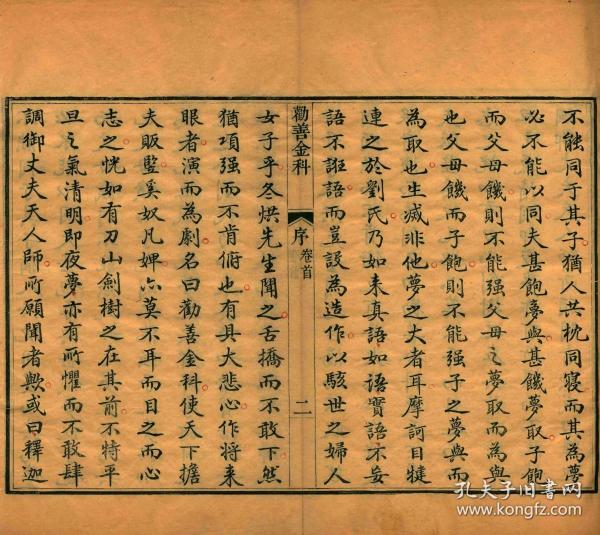 不能同于其子猶人共枕同寢而其為夢
必不能以同夫甚飽夢與甚饑夢取子飽
而父母饑則不能强父母之夢取而為與
也父母饑而子飽則不能强子之夢與而
為取也生滅非他夢之大者耳摩訶目犍
連之於劉氏乃如来真語如語實語不妄
語不誑語而豈設為造作以駭世之婦人
勸善金科
序
卷首
二
女子乎冬烘先生聞之舌撟而不敢下然
猶項强而不肯俯也有具大悲心作將来
眼者演而為劇名曰勸善金科使天下擔
夫販豎奚奴凡婢亦莫不耳而目之而心
志之恍如有刀山劍樹之在其前不特平
旦之氣清明即夜夢亦有所懼而不敢肆
調御丈夫天人師所願聞者歟或曰釋迦
孔夫子旧书网
www.kongfz.com